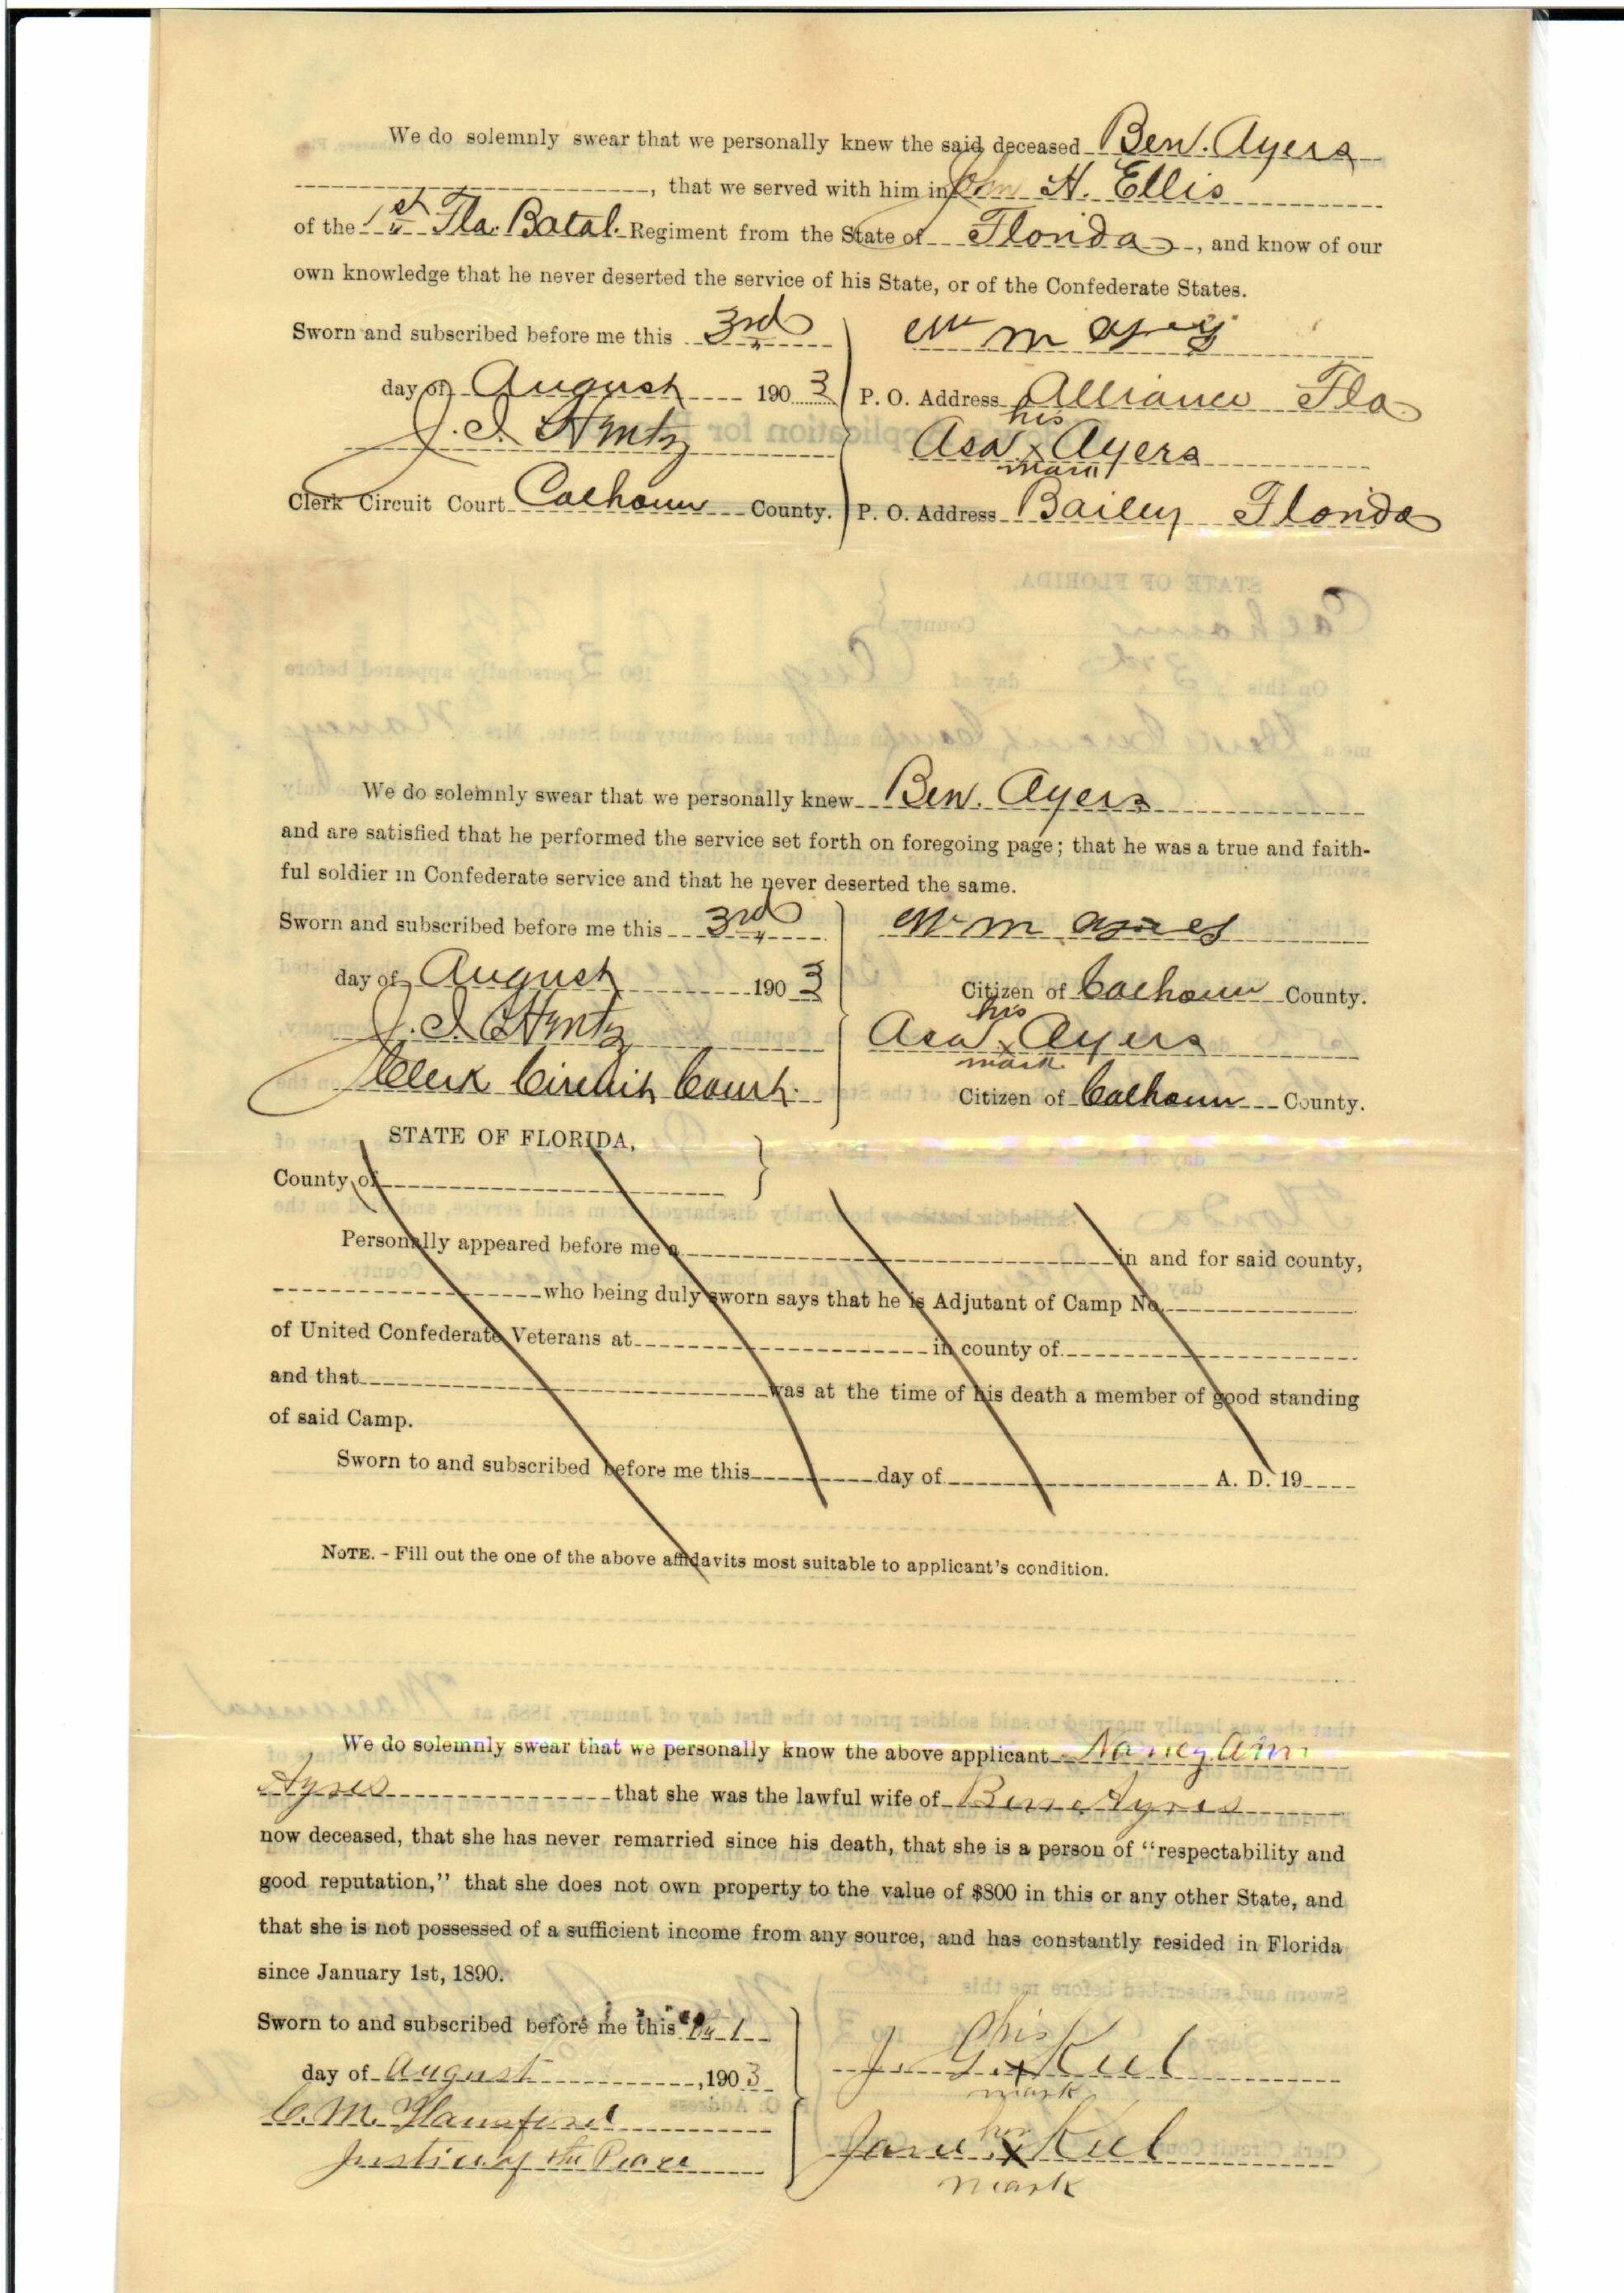 We do solemnly swear that we personally knew the said deceased Ben. Ayers
, that we served with him in John H. Ellis
of the 1st Fla. Batal. Regiment from the State of Florida, and know of our
own knowledge that he never deserted the service of his State, or of the Confederate States.
Sworn and subscribed before me this 3rd
Wm m
day of August 1903
P. O. Address Alliance Fla
J. I. Hentz
his
Asa x Ayers
mark
Clerk Circuit Court Calhoun County.
P. O. Address Bailey Florida
We do solemnly swear that we personally knew Ben. Ayers
and are satisfied that he performed the service set forth on foregoing page; that he was a true and faith-
ful soldier in Confederate service and that he never deserted the same.
Sworn and subscribed before me this 3rd
Wm m
day of August 1903
Citizen of Calhoun County.
J. I. Hentz
his
Asa x Ayers
mark
Clerk Circuit Court.
Citizen of Calhoun County.
STATE OF FLORIDA,
County of
Personally appeared before me a in and for said county,
who being duly sworn says that he is Adjutant of Camp No.
of United Confederate Veterans at in county of
and that was at the time of his death a member of good standing
of said Camp.
Sworn to and subscribed before me this day of A. D. 19
NOTE. - Fill out the one of the above affidavits most suitable to applicant's condition.
We do solemnly swear that we personally know the above applicant Nancy Ann
Ayres that she was the lawful wife of Benn Ayres
now deceased, that she has never remarried since his death, that she is a person of "respectability and
good reputation," that she does not own property to the value of $800 in this or any other State, and
that she is not possessed of a sufficient income from any source, and has constantly resided in Florida
since January 1st, 1890.
Sworn to and subscribed before me this
day of August, 1903
his
J. G. x Keel
mark
C. M.
Justice of the Peace
Jane x Keel
mark